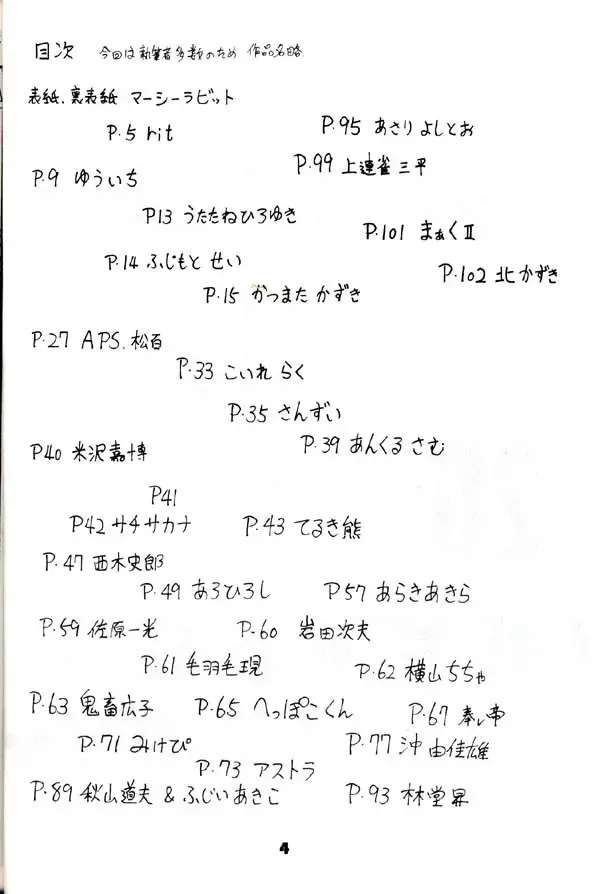 目次 今回は執筆者多数のため 作品名略
表紙.裏表紙 マーシーラビット
P.5 rit
P.95 あさりよしとお
P.99 上連雀三平
P.9 ゆういち
P13 うたたねひろゆき
P.101 まぁくⅡ
P.14 ふじもと せい
P.102 北かずき
P.15 かつまた かずき
P.27 APS.松百
P.33 こいれ らく
P.35 さんずい
P.39 あんくる さむ
P40 米沢嘉博
P41
P42 サチサカナ
P.43 てるき熊
P.47 西木史郎
P.49 あろひろし
P57 あらきあきら
P.59 佐原一光
P-60 岩田次夫
P.61 毛羽毛現
P.62 横山ちちゃ
P.63 鬼畜広子
P.65 へっぽこくん
P.67
P.71 みけぴ
P.77 沖由佳雄
P.73 アストラ
P.89 秋山道夫 & ふじいあきこ
P.93 林堂昇
4